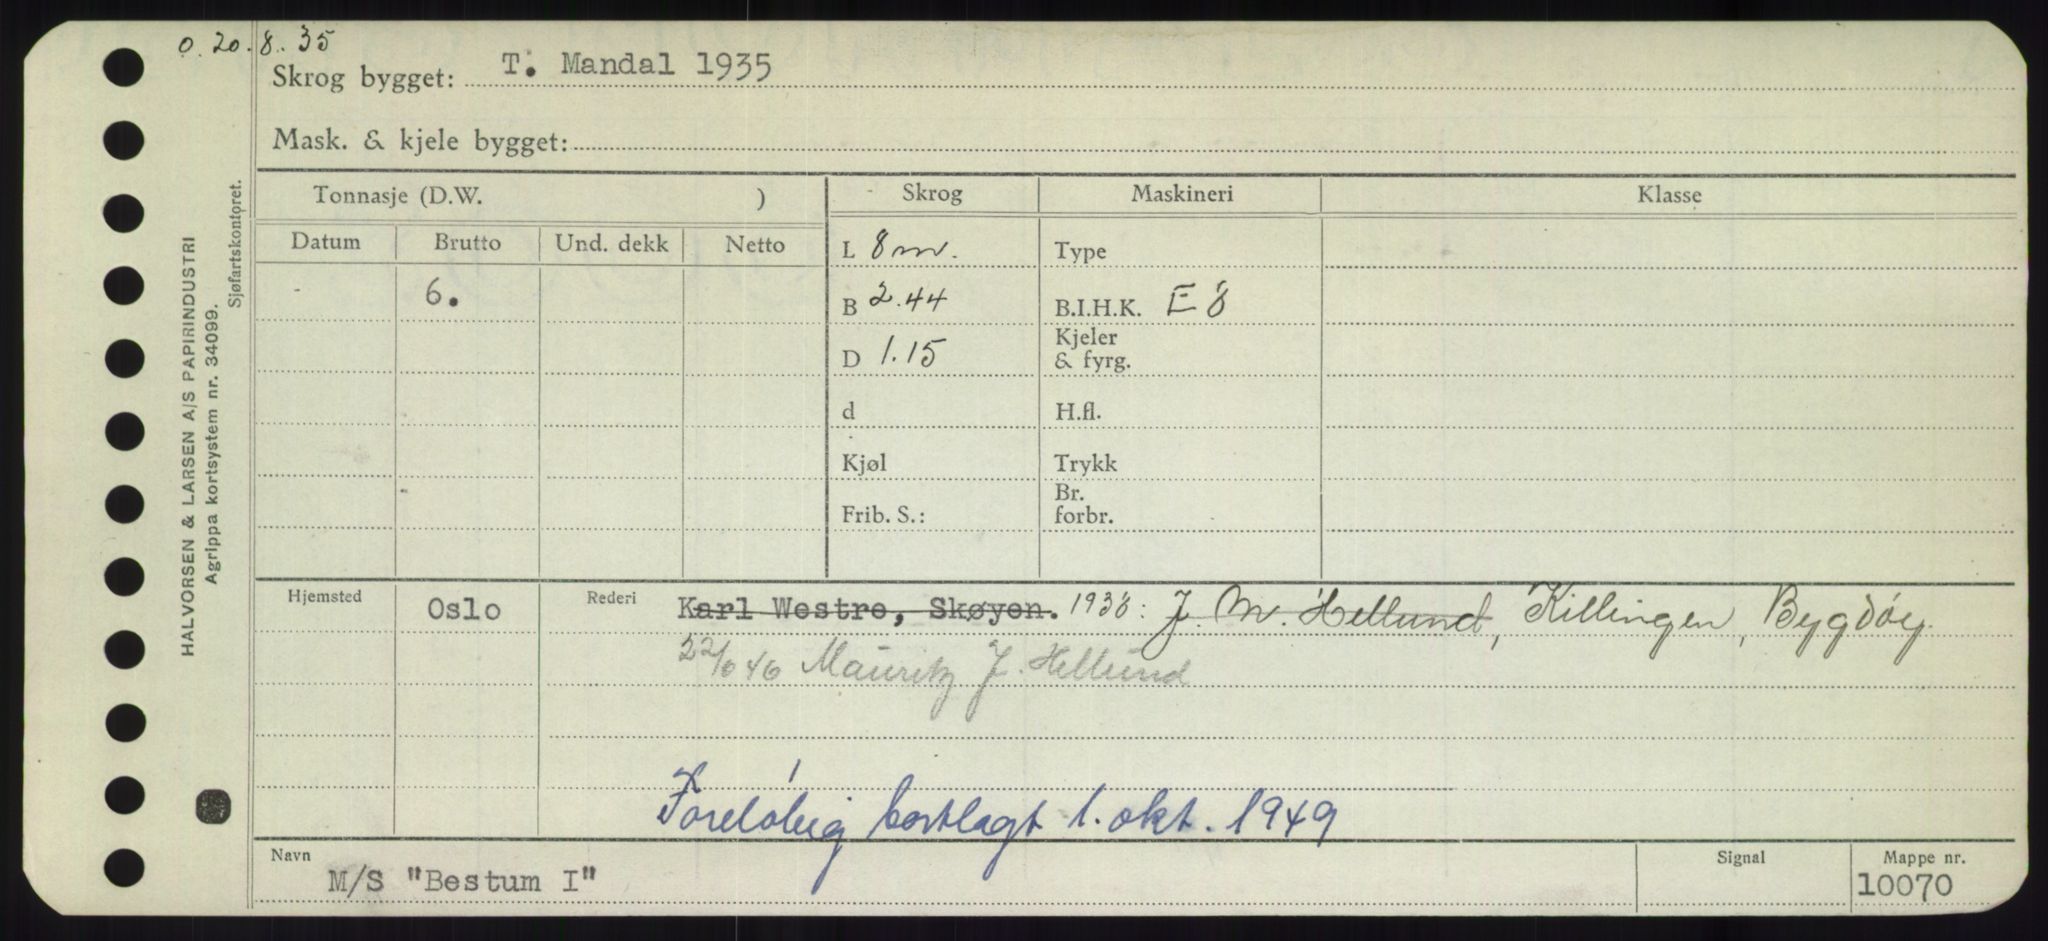 O. 20.8.35
Skrog bygget: T. Mandal 1935
Mask. & kjele bygget:
Tonnasje (D.W. ) Skrog Maskineri Klasse
Datum Brutto Und. dekk Netto L 8 m. Type
6. B 2.44 B.I.H.K. E 8
D 1.15 Kjeler & fyrg.
d H.fl.
Kjøl Trykk
Frib. S.: Br. forbr.
Hjemsted Oslo Rederi Karl Westre, Skøyen. 1938: J. M. Hellund, Killingen, Bygdöy.
22/6 46 Mauritz J. Hellund
Foreløbig bortlagt 1. okt. 1949
Navn Signal Mappe nr.
M/S "Bestum I" 10070
HALVORSEN & LARSEN A/S PAPIRINDUSTRI
Agrippa kortsystem nr. 34099.
Sjøfartskontoret.